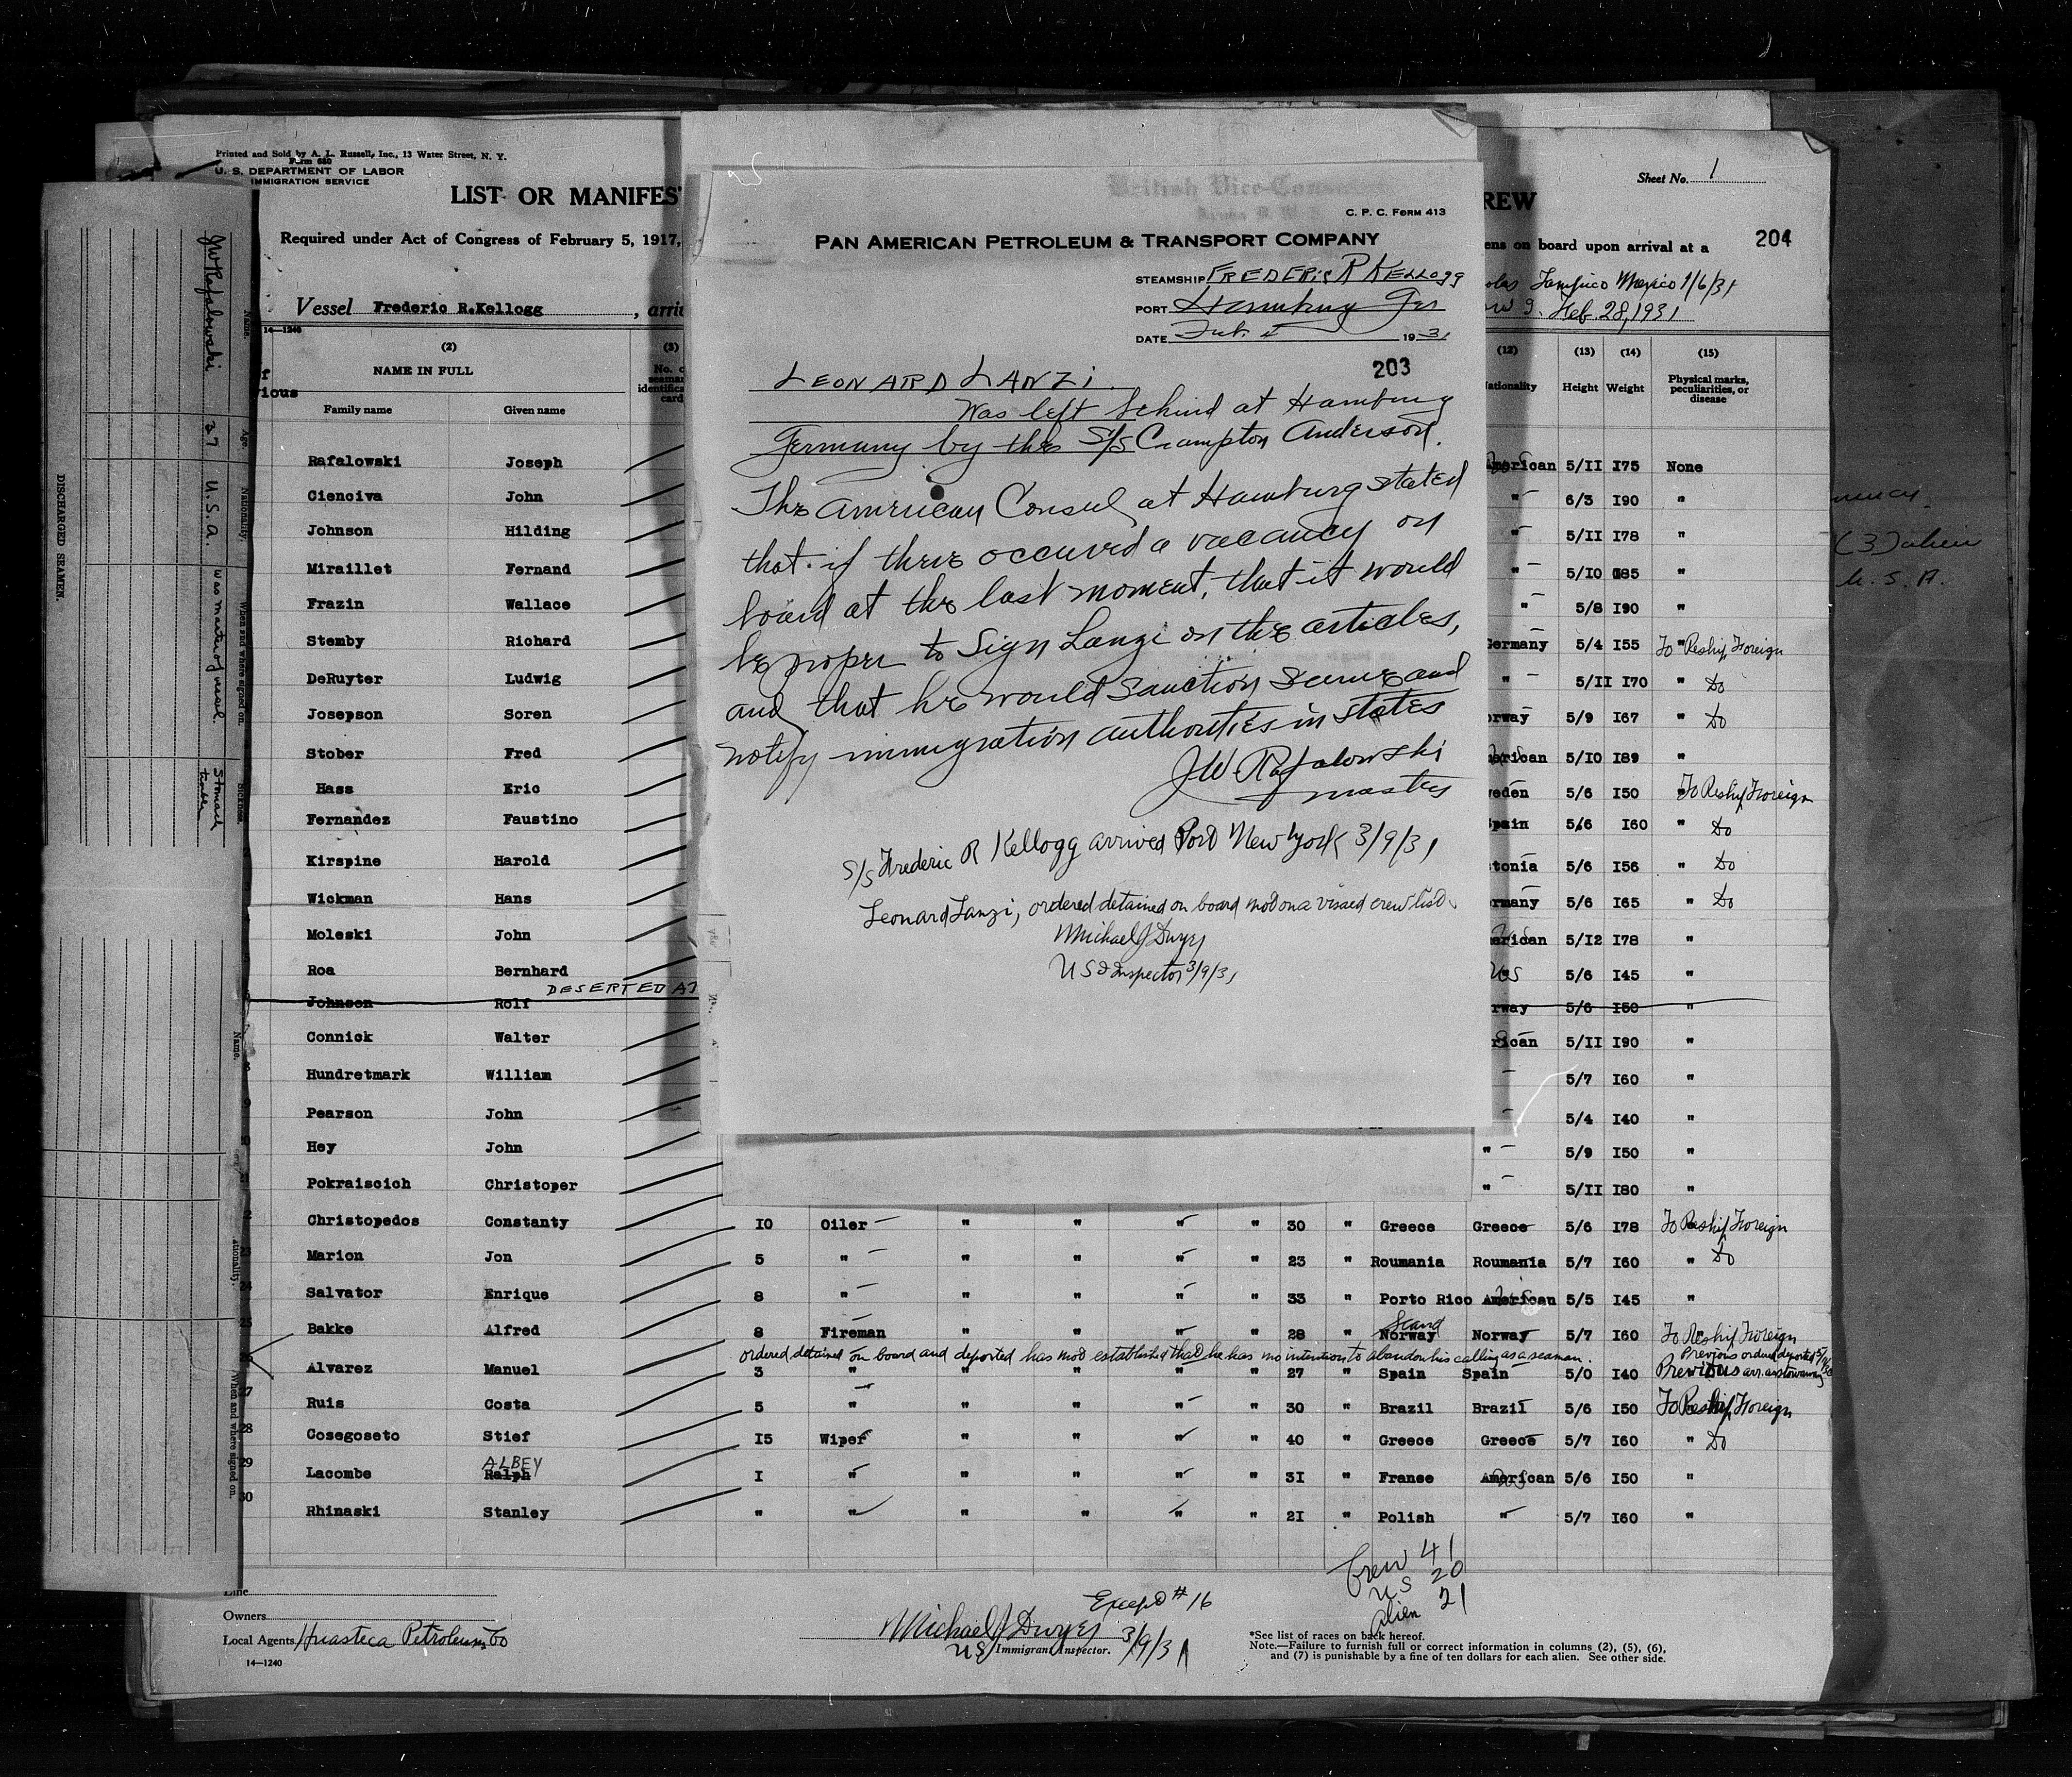 Printed and Sold by A. L. Russell, Inc., 13 Water Street, N. Y.
Form 680
U. S. DEPARTMENT OF LABOR
IMMIGRATION SERVICE
LIST OR MANIFES
REW
Sheet No. 1
Required under Act of Congress of February 5, 1917,
ens on board upon arrival at a
204
Vessel Frederic R.Kellogg, arri
Tampico Mexico 1/6/31
Feb. 28, 1931
14-1240
(2)
NAME IN FULL
Family name Given name
(3)
(12) (13) Height (14) Weight (15) Physical marks, peculiarities, or disease
British Vice-Consu
C. P. C. FORM 413
PAN AMERICAN PETROLEUM & TRANSPORT COMPANY
STEAMSHIP FREDERIC R KELLOGG
PORT Hamburg Ger
DATE 1931
203
LEONARD LANZI
Was left behind at Hamburg
Germany by the S/S Crampton Anderson.
The American Consul at Hamburg stated
that if there occured a vacancy on
board at the last moment, that it would
be proper to sign Lanzi on the articles,
and that he would sanction same and
notify immigration authorities in states
JW. Rafalowski
master
S/S Frederic R Kellogg arrived Port New York 3/9/31
Leonard Lanzi, ordered detained on board not on a visaed crew list.
Michael J Dwyer
US Inspector 3/9/31
Rafalowski Joseph American 5/II I75 None
Cienciva John " 6/3 I90 "
Johnson Hilding " 5/II I78 "
Miraillet Fernand " 5/10 I85 "
Frazin Wallace " 5/8 I90 "
Stemby Richard Germany 5/4 I55 " To Reship Foreign
DeRuyter Ludwig " 5/II I70 " Do
Josepson Soren rway 5/9 I67 " Do
Stober Fred erican 5/IO I89 "
Hass Eric eden 5/6 I50 " To Reship Foreign
Fernandez Faustino Spain 5/6 I60 " Do
Kirspine Harold tonia 5/6 I56 " Do
Wickman Hans rmany 5/6 I65 " Do
Moleski John erican 5/I2 I78 "
Roa Bernhard US 5/6 I45 "
DESERTED AT
Johnson Rolf rway 5/6 I50 "
Connick Walter rican 5/II I90 "
Hundretmark William 5/7 I60 "
Pearson John 5/4 I40 "
Hey John " 5/9 I50 "
Pokraiscich Christoper " 5/II I80 "
Christopedos Constanty IO Oiler " " " " 30 " Greece Greece 5/6 I78 To Reship Foreign
23 Marion Jon 5 " " " " " 23 " Roumania Roumania 5/7 I60 " Do
24 Salvator Enrique 8 " " " " " 33 " Porto Rico American 5/5 I45 "
Scand
25 Bakke Alfred 8 Fireman " " " " 28 " Norway Norway 5/7 I60 To Reship Foreign
ordered detained on board and deported has not established that he has no intention to abandon his calling as a seaman.
Previous ordered deported
26 Alvarez Manuel 3 " " " " " 27 " Spain Spain 5/0 I40 Previous arr. as stowaway
27 Ruis Costa 5 " " " " " 30 " Brazil Brazil 5/6 I50 To Reship Foreign
28 Cosegoseto Stief I5 Wiper " " " " 40 " Greece Greece 5/7 I60 " Do
ALBEY
29 Lacombe Ralph I " " " " " 3I " Franse American 5/6 I50 "
30 Rhinaski Stanley " " " " " " 2I " Polish " 5/7 I60 "
Crew 41
US 20
Alien 21
Line
Owners
Local Agents Huasteca Petroleum Co
14-1240
Except #16
Michael J Dwyer 3/9/31
US Immigrant Inspector.
*See list of races on back hereof.
Note.—Failure to furnish full or correct information in columns (2), (5), (6),
and (7) is punishable by a fine of ten dollars for each alien. See other side.
DISCHARGED SEAMEN.
Name. Age. Nationality. When and where signed on. Sickness.
JW Rafalowski 37 U.S.A. was master of vessel. Stomach trouble
Name. When and where signed on.
(3) alien
U. S. A.